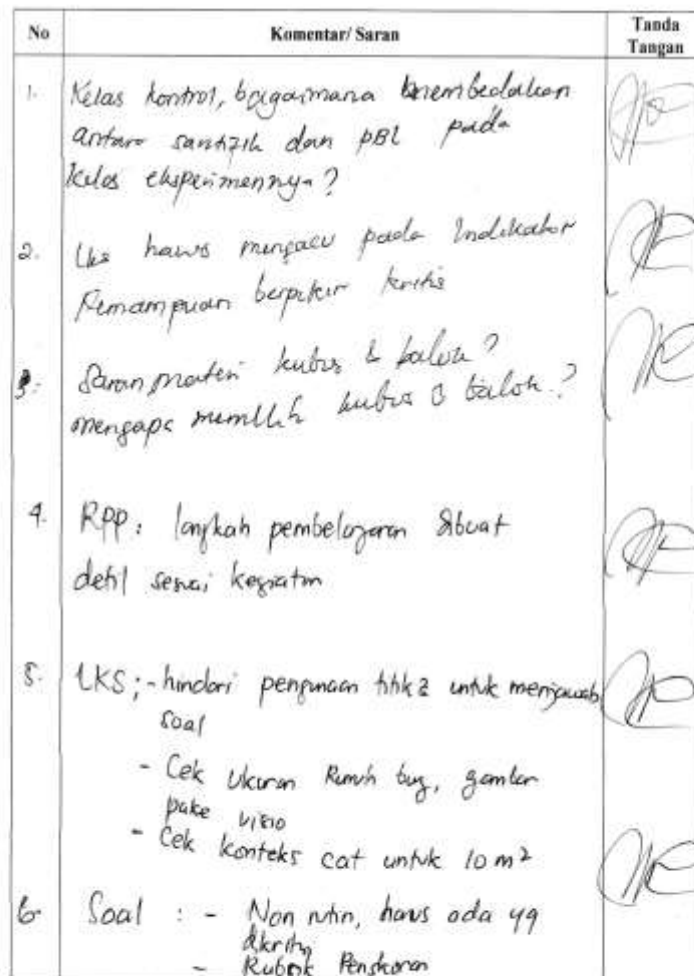 No Komentar/ Saran Tanda Tangan
1. Kelas kontrol, bagaimana membedakan
antara saintifik dan PBL pada
kelas eksperimennya?
2. LKS harus mengacu pada Indikator
Kemampuan berpikir kritis
3. Saran materi kubus & balok?
mengapa memilih kubus & balok?
4. RPP: langkah pembelajaran dibuat
detil sesuai kegiatan
5. LKS; - hindari penggunaan titik2 untuk menjawab
soal
- Cek Ukuran Rumah
, gambar
pake visio
- Cek konteks cat untuk 10 m²
6. Soal : - Non rutin, harus ada yg
dikritisi
- Rubrik Penskoran